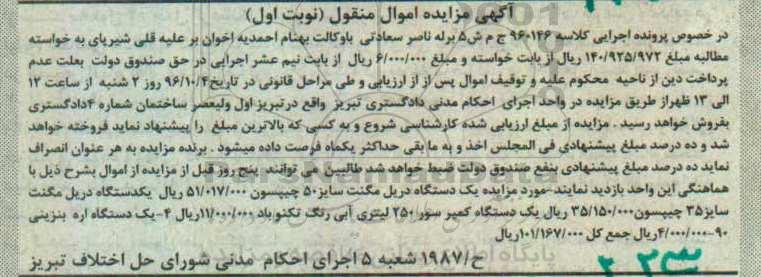 آگهی مزایده اموال منقول (نوبت اول)
در خصوص پرونده اجرایی کلاسه ۹۶۰۱۴۶ ج م ش۵ برله ناصر سعادتی باوکالت بهنام احمدیه اخوان بر علیه قلی شیرپای به خواسته
مطالبه مبلغ ۱۴۰/۹۲۵/۹۷۲ ریال از بابت خواسته و مبلغ ۶/۰۰۰/۰۰۰ ریال از بابت نیم عشر اجرایی در حق صندوق دولت بعلت عدم
پرداخت دین از ناحیه محکوم علیه و توقیف اموال پس از از ارزیابی و طی مراحل قانونی در تاریخ۹۶/۱۰/۴ روز ۲ شنبه از ساعت ۱۲
الی ۱۳ ظهراز طریق مزایده در واحد اجرای احکام مدنی دادگستری تبریز واقع درتبریز اول ولیعصر ساختمان شماره ۴دادگستری
بفروش خواهد رسید . مزایده از مبلغ ارزیابی شده کارشناسی شروع و به کسی که بالاترین مبلغ را پیشنهاد نماید فروخته خواهد
شد و ده درصد مبلغ پیشنهادی فی المجلس اخذ و به ما بقی حداکثر یکماه فرصت داده میشود . برنده مزایده به هر عنوان انصراف
نماید ده درصد مبلغ پیشنهادی بنفع صندوق دولت ضبط خواهد شد طالبین می توانند پنج روز قبل از مزایده از اموال بشرح ذیل با
هماهنگی این واحد بازدید نمایند-مورد مزایده یک دستگاه دریل مگنت سایز۵۰ چیپسون ۵۱/۰۱۷/۰۰۰ ریال یکدستگاه دریل مگنت
سایز۳۵ چیپسون۳۵/۱۵۰/۰۰۰ ریال یک دستگاه کمپر سور ۲۵۰ لیتری آبی رنگ تکنو باد ۱۱/۰۰۰/۰۰۰ریال ۴-یک دستگاه اره بنزینی
۹۰-۴/۰۰۰/۰۰۰ریال جمع کل ۱۰۱/۱۶۷/۰۰۰ریال
ح/۱۹۸۷ شعبه ۵ اجرای احکام مدنی شورای حل اختلاف تبریز